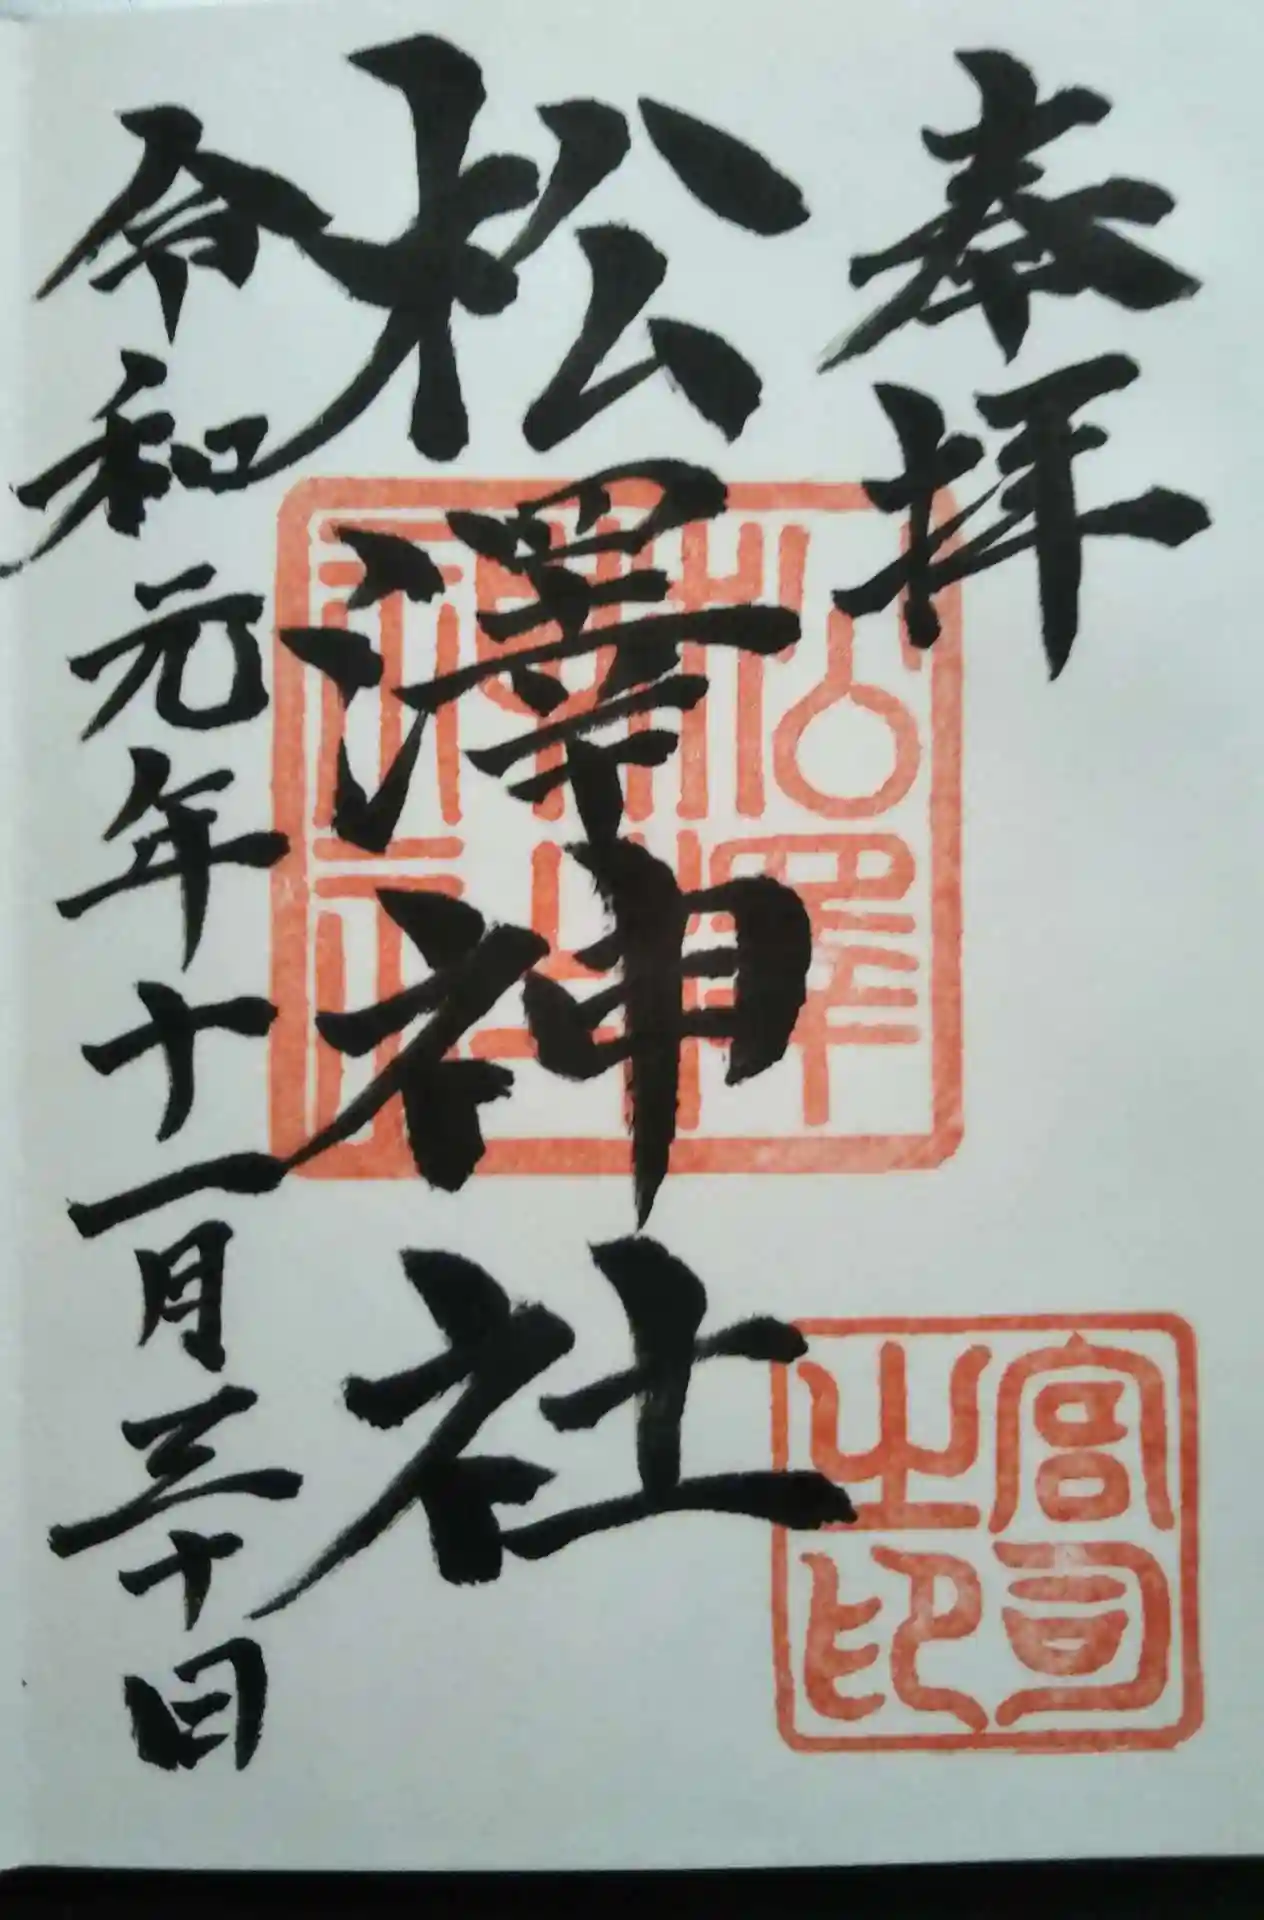 奉拝
松澤神社
令和元年十一月三十日
松澤
神社
宮司
之印